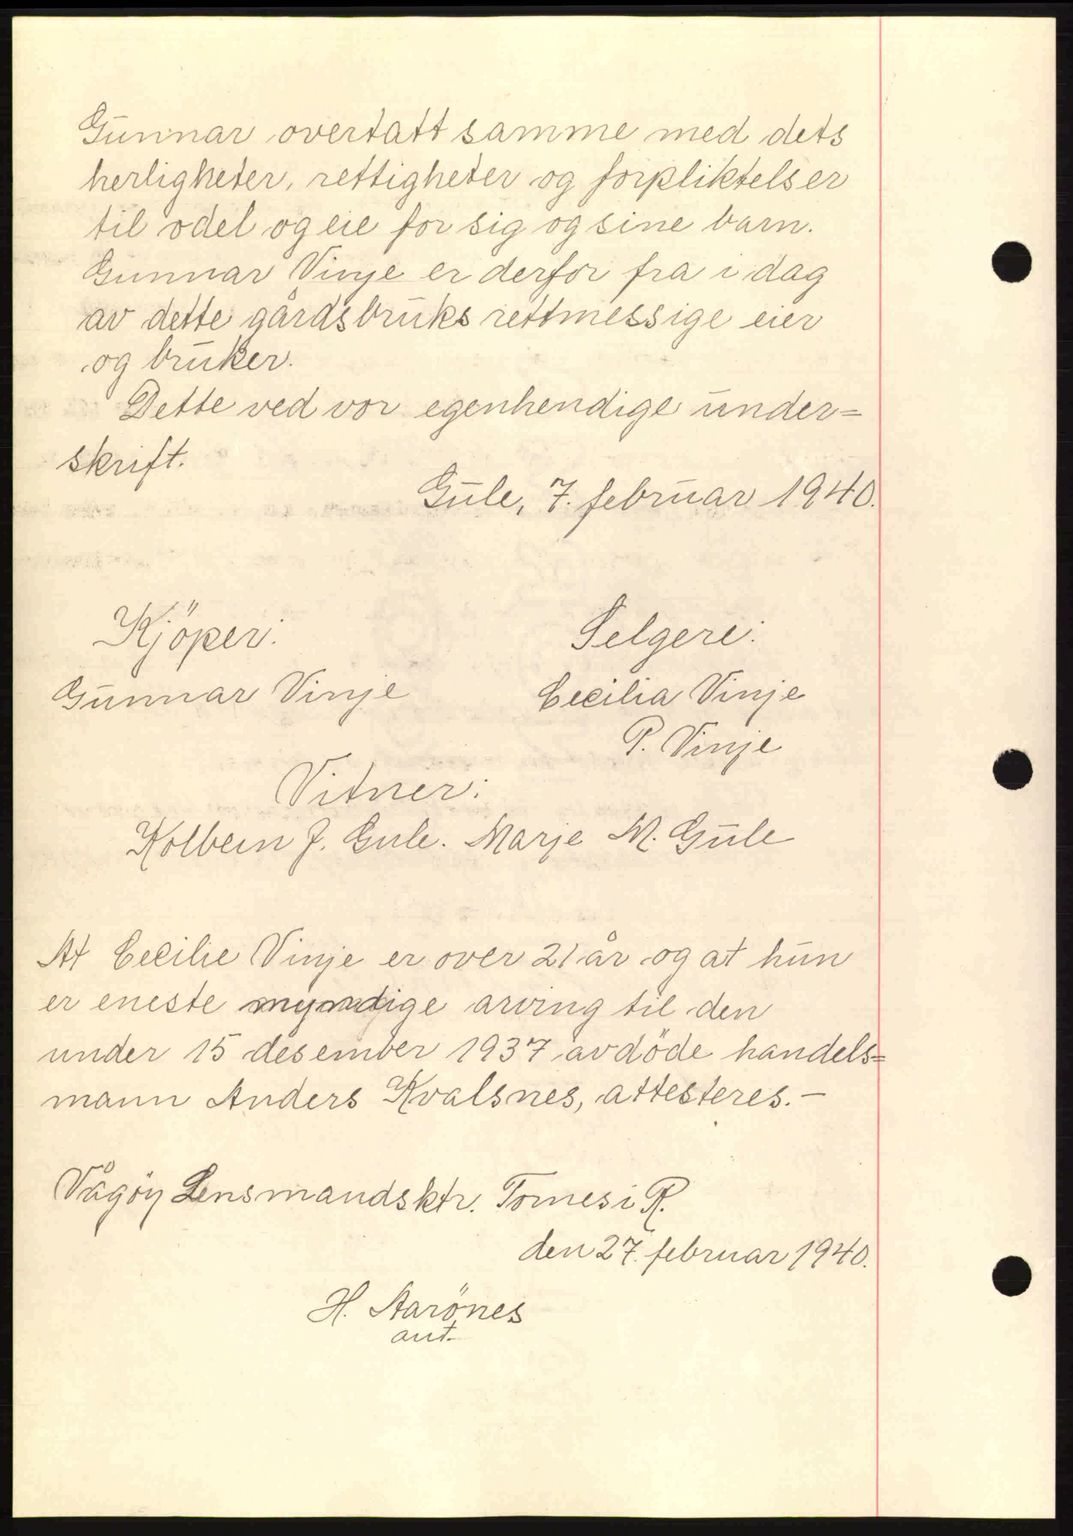 Gunnar overtatt samme med dets
herligheter, rettigheter og forpliktelser
til odel og eie for sig og sine barn.
Gunnar Vinje er derfor fra i dag
av dette gårdsbruks rettmessige eier
og bruker.
Dette ved vor egenhendige under=
skrift.
Gule, 7. februar 1940.
Kjöper: Selgere:
Gunnar Vinje Cecilia Vinje
P. Vinje
Vitner:
Kolbein J. Gule. Marje M. Gule
At Cecilie Vinje er over 21 år og at hun
er eneste myndige arving til den
under 15 desember 1937 avdöde handels=
mann Anders Kvalsnes, attesteres.—
Vågöy Lensmandsktr. Tornes i R.
den 27. februar 1940.
H. Aarönes
aut.